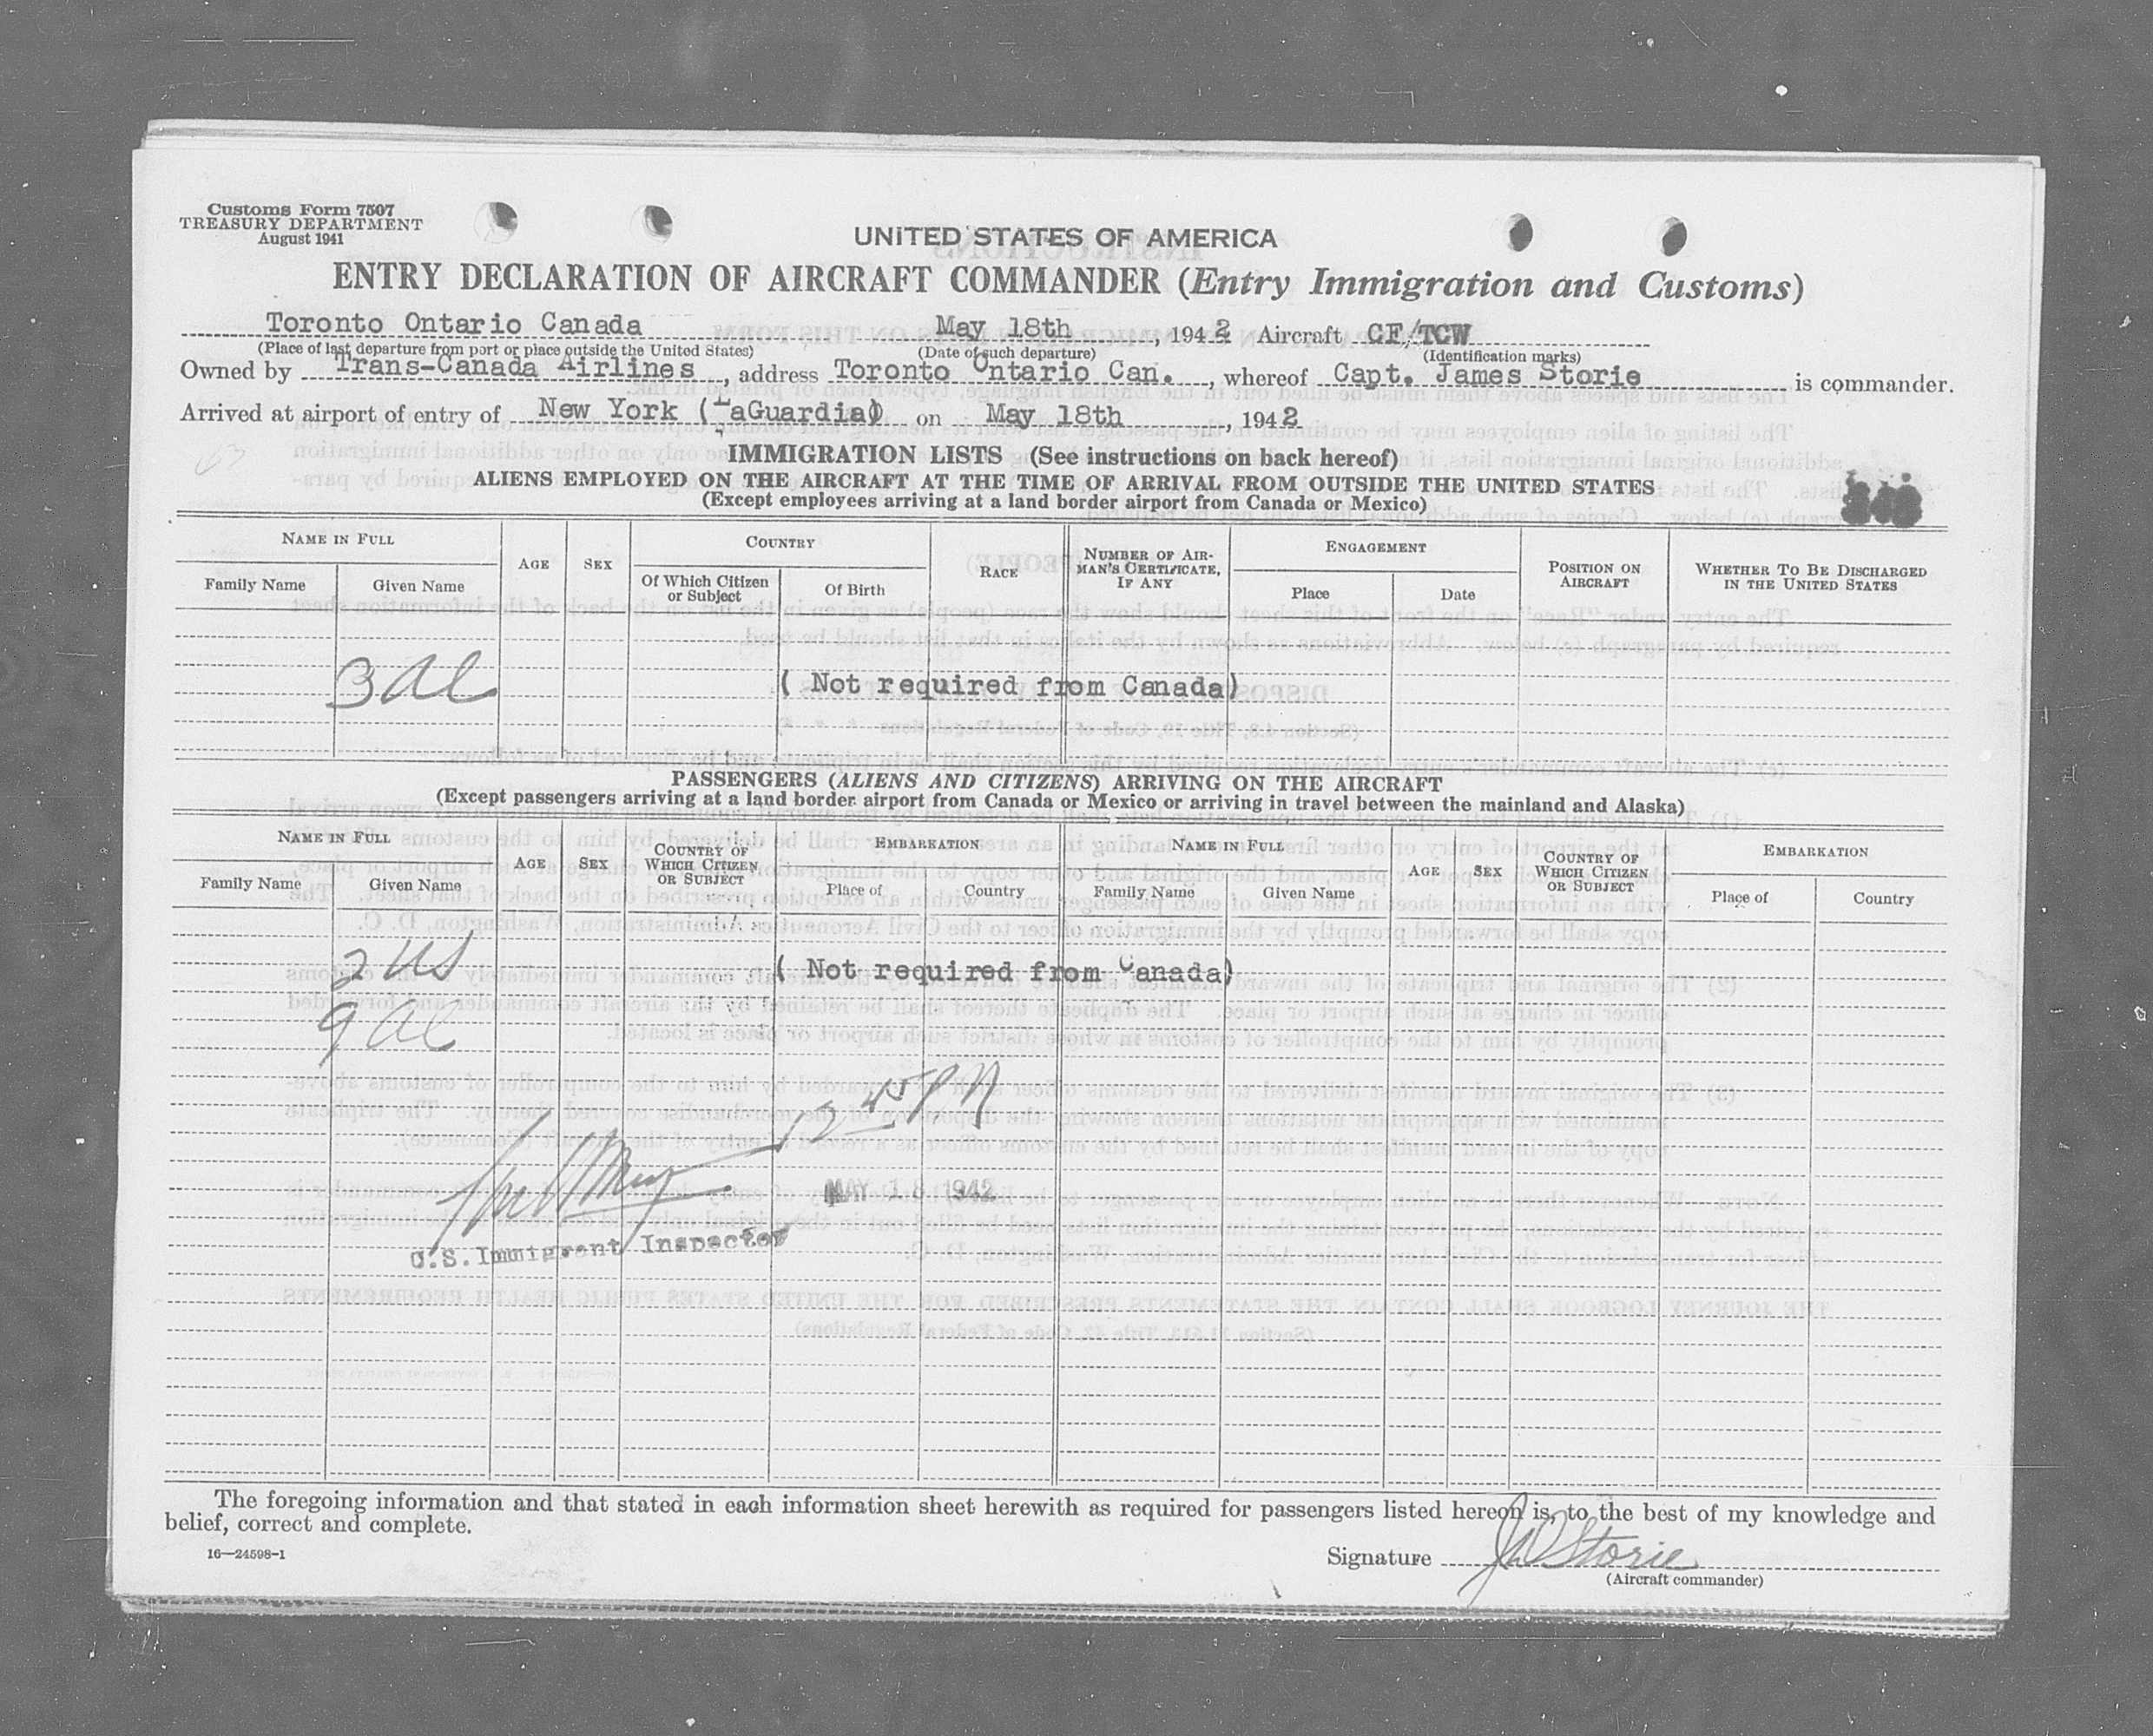 Customs Form 7507
TREASURY DEPARTMENT
August 1941
UNITED STATES OF AMERICA
ENTRY DECLARATION OF AIRCRAFT COMMANDER (Entry Immigration and Customs)
Toronto Ontario Canada May 18th, 1942 Aircraft CF/TCW
(Place of last departure from port or place outside the United States) (Date of such departure) (Identification marks)
Owned by Trans-Canada Airlines, address Toronto Ontario Can., whereof Capt. James Storie is commander.
Arrived at airport of entry of New York (LaGuardia) on May 18th, 1942
IMMIGRATION LISTS (See instructions on back hereof)
ALIENS EMPLOYED ON THE AIRCRAFT AT THE TIME OF ARRIVAL FROM OUTSIDE THE UNITED STATES
(Except employees arriving at a land border airport from Canada or Mexico)
NAME IN FULL AGE SEX COUNTRY RACE NUMBER OF AIRMAN'S CERTIFICATE, IF ANY ENGAGEMENT POSITION ON AIRCRAFT WHETHER TO BE DISCHARGED IN THE UNITED STATES
Family Name Given Name Of Which Citizen or Subject Of Birth Place Date
3 al
( Not required from Canada)
PASSENGERS (ALIENS AND CITIZENS) ARRIVING ON THE AIRCRAFT
(Except passengers arriving at a land border airport from Canada or Mexico or arriving in travel between the mainland and Alaska)
NAME IN FULL AGE SEX COUNTRY OF WHICH CITIZEN OR SUBJECT EMBARKATION NAME IN FULL AGE SEX COUNTRY OF WHICH CITIZEN OR SUBJECT EMBARKATION
Family Name Given Name Place of Country Family Name Given Name Place of Country
2 US
( Not required from Canada)
9 al
12 45 PM
MAY 18 1942
U.S. Immigrant Inspector
The foregoing information and that stated in each information sheet herewith as required for passengers listed hereon is, to the best of my knowledge and
belief, correct and complete.
16—24598-1
Signature Storie
(Aircraft commander)